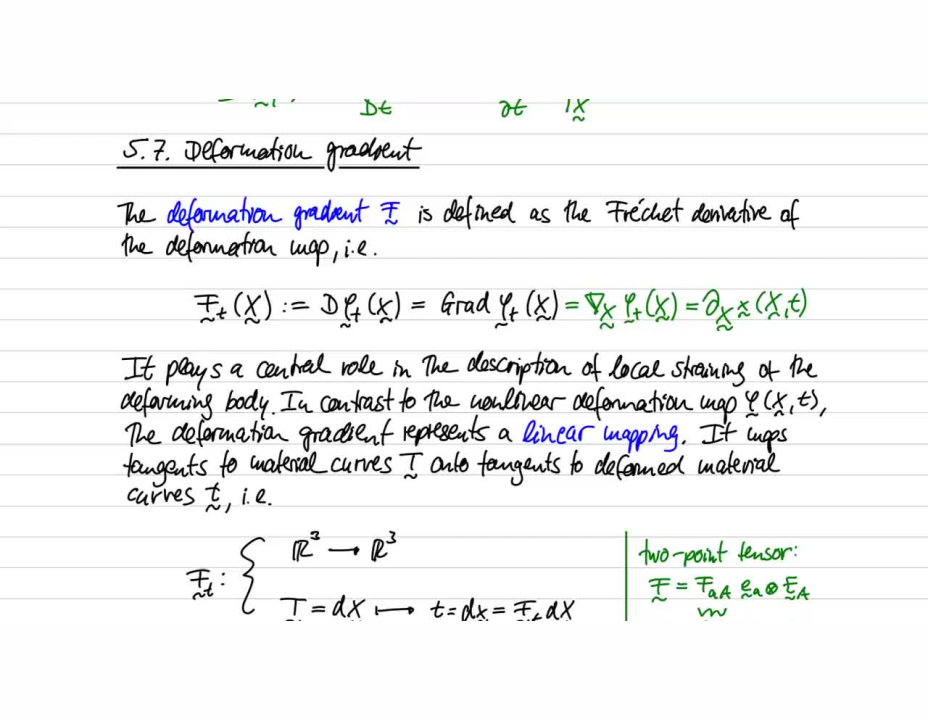 Dt ∂t X
5.7. Deformation gradient
The deformation gradient F is defined as the Fréchet derivative of
the deformation map, i.e.
F_t(X) := Dφ_t(X) = Grad φ_t(X) = ∇_X φ_t(X) = ∂_X x(X,t)
It plays a central role in the description of local straining of the
deforming body. In contrast to the nonlinear deformation map φ(X,t),
the deformation gradient represents a linear mapping. It maps
tangents to material curves T onto tangents to deformed material
curves t, i.e.
F_t : { ℝ³ → ℝ³
T = dX ↦ t = dx = F_t dX
two-point tensor:
F = F_aA e_a ⊗ E_A